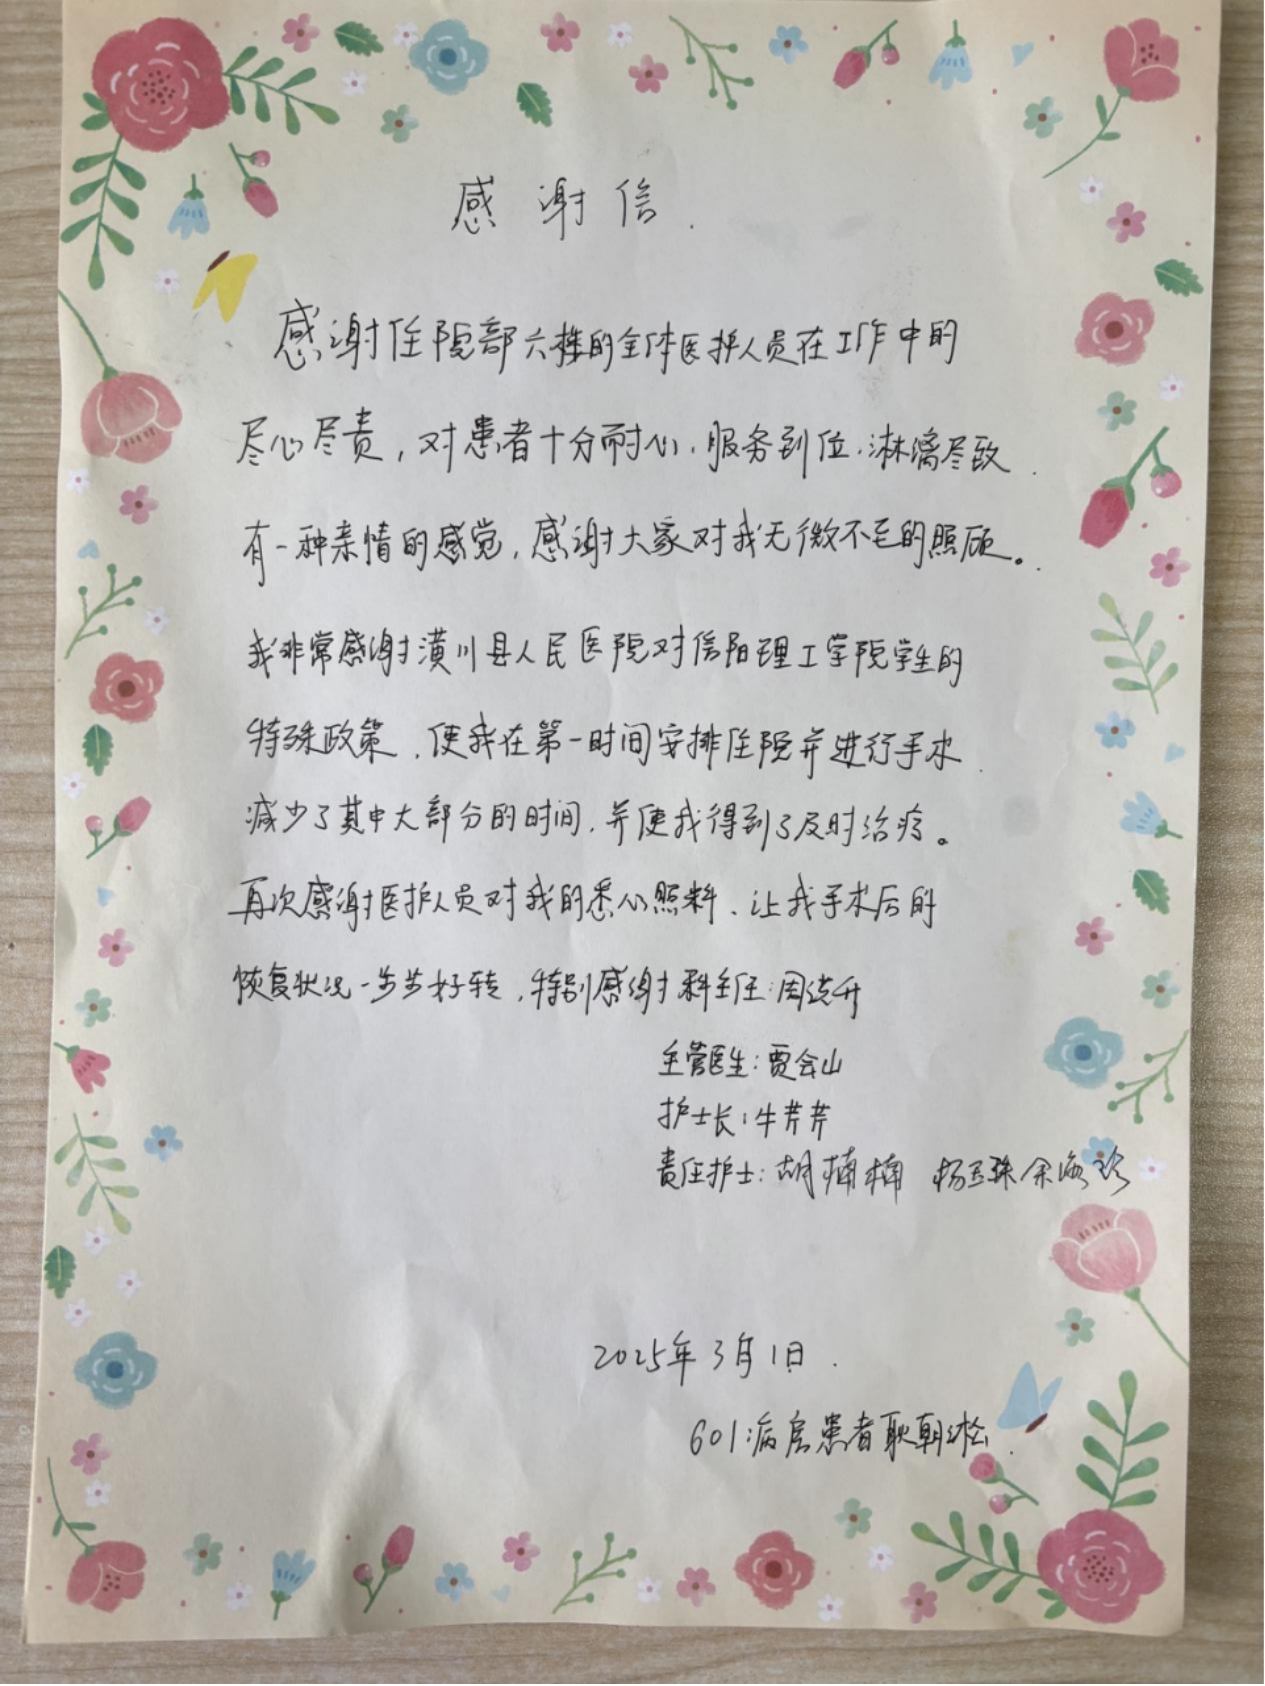 感谢信.
感谢住院部六楼的全体医护人员在工作中的
尽心尽责,对患者十分耐心,服务到位,淋漓尽致.
有一种亲情的感觉,感谢大家对我无微不至的照顾。
我非常感谢潢川县人民医院对信阳理工学院学生的
特殊政策,使我在第一时间安排住院并进行手术.
减少了其中大部分的时间,并使我得到了及时治疗。
再次感谢医护人员对我的悉心照料、让我手术后的
恢复状况一步步好转,特别感谢科主任:周 升
主管医生:贾会山
护士长:牛芹芹
责任护士:胡楠楠 杨玉珠 余海珍
2025年3月1日.
601病房患者耿朝淞.